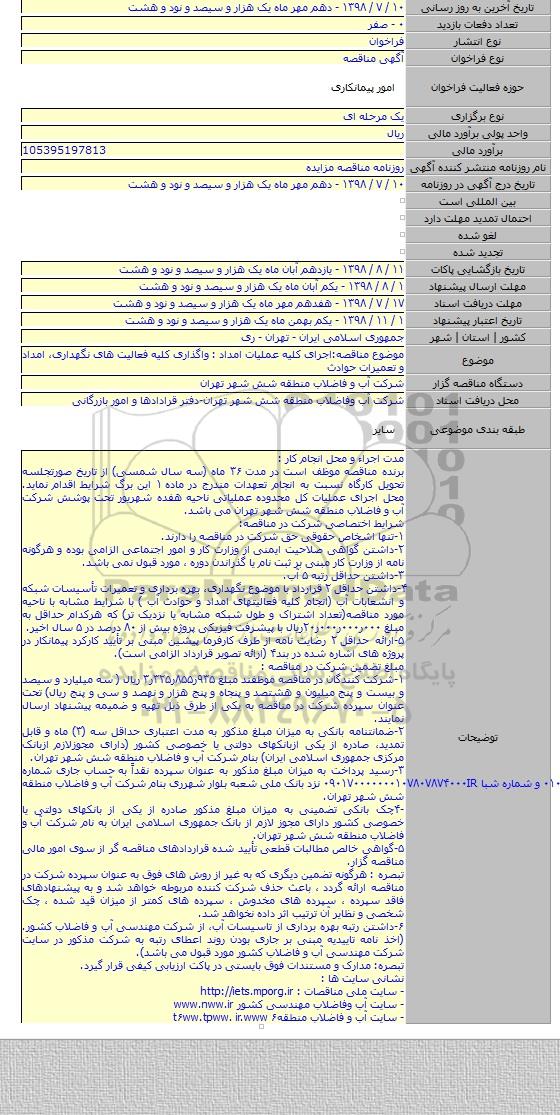 تاریخ آخرین به روز رسانی ۱۰ / ۷ / ۱۳۹۸ - دهم مهر ماه یک هزار و سیصد و نود و هشت
تعداد دفعات بازدید ۰ - صفر
نوع انتشار فراخوان
نوع فراخوان آگهی مناقصه
حوزه فعالیت فراخوان امور پیمانکاری
نوع برگزاری یک مرحله ای
واحد پولی برآورد مالی ریال
برآورد مالی 105395197813
نام روزنامه منتشر کننده آگهی روزنامه مناقصه مزایده
تاریخ درج آگهی در روزنامه ۱۰ / ۷ / ۱۳۹۸ - دهم مهر ماه یک هزار و سیصد و نود و هشت
بین المللی است
احتمال تمدید مهلت دارد
لغو شده
تجدید شده
تاریخ بازگشایی پاکات ۱۱ / ۸ / ۱۳۹۸ - یازدهم آبان ماه یک هزار و سیصد و نود و هشت
مهلت ارسال پیشنهاد ۱ / ۸ / ۱۳۹۸ - یکم آبان ماه یک هزار و سیصد و نود و هشت
مهلت دریافت اسناد ۱۷ / ۷ / ۱۳۹۸ - هفدهم مهر ماه یک هزار و سیصد و نود و هشت
تاریخ اعتبار پیشنهاد ۱ / ۱۱ / ۱۳۹۸ - یکم بهمن ماه یک هزار و سیصد و نود و هشت
کشور | استان | شهر جمهوری اسلامی ایران - تهران - ری
موضوع موضوع مناقصه:اجرای کلیه عملیات امداد : واگذاری کلیه فعالیت های نگهداری، امداد
و تعمیرات حوادث
دستگاه مناقصه گزار شرکت آب و فاضلاب منطقه شش شهر تهران
محل دریافت اسناد شرکت آب وفاضلاب منطقه شش شهر تهران-دفتر قرادادها و امور بازرگانی
طبقه بندی موضوعی سایر
توضیحات
مدت اجراء و محل انجام کار :
برنده مناقصه موظف است در مدت ۳۶ ماه (سه سال شمسی) از تاریخ صورتجلسه
تحویل کارگاه نسبت به انجام تعهدات مندرج در ماده ۱ این برگ شرایط اقدام نماید.
محل اجرای عملیات کل محدوده عملیاتی ناحیه هفده شهریور تحت پوشش شرکت
آب و فاضلاب منطقه شش شهر تهران می باشد.
شرایط اختصاصی شرکت در مناقصه:
۱-تنها اشخاص حقوقی حق شرکت در مناقصه را دارند.
۲-داشتن گواهی صلاحیت ایمنی از وزارت کار و امور اجتماعی الزامی بوده و هرگونه
نامه از وزارت کار مبنی بر ثبت نام یا گذراندن دوره ، مورد قبول نمی باشد.
۳-داشتن حداقل رتبه ۵ آب.
۴-داشتن حداقل ۲ قرارداد با موضوع نگهداری، بهره برداری و تعمیرات تأسیسات شبکه
و انشعابات آب (انجام کلیه فعالیتهای امداد و حوادث آب ) با شرایط مشابه با ناحیه
مورد مناقصه(تعداد اشتراک و طول شبکه مشابه یا نزدیک تر) که هرکدام حداقل به
مبلغ ۲۰٫۰۰۰٫۰۰۰٫۰۰۰ریال با پیشرفت فیزیکی پروژه بیش از ۸۰ درصد در ۵ سال اخیر.
۵-ارائه حداقل ۲ رضایت نامه از طرف کارفرما پیشین مبنی بر تأیید کارکرد پیمانکار در
پروژه های اشاره شده در بند۴ (ارائه تصویر قرارداد الزامی است).
مبلغ تضمین شرکت در مناقصه :
۱-شرکت کنندگان در مناقصه موظفند مبلغ ۳٫۳۲۵٫۸۵۵٫۹۳۵ ریال ( سه میلیارد و سیصد
و بیست و پنج میلیون و هشتصد و پنجاه و پنج هزار و نهصد و سی و پنج ریال) تحت
عنوان سپرده شرکت در مناقصه به یکی از طرق ذیل تهیه و ضمیمه پیشنهاد ارسال
نمایند.
۲-ضمانتنامه بانکی به میزان مبلغ مذکور به مدت اعتباری حداقل سه (۳) ماه و قابل
تمدید، صادره از یکی ازبانکهای دولتی یا خصوصی کشور (دارای مجوزلازم ازبانک
مرکزی جمهوری اسلامی ایران) بنام شرکت آب و فاضلاب منطقه شش شهر تهران.
۳-رسید پرداخت به میزان مبلغ مذکور به عنوان سپرده نقداً به حساب جاری شماره
و شماره شبا نزد بانک ملی شعبه بلوار شهرری بنام شرکت آب و فاضلاب منطقه
شش شهر تهران.
۴-چک بانکی تضمینی به میزان مبلغ مذکور صادره از یکی از بانکهای دولتی یا
خصوصی کشور دارای مجوز لازم از بانک جمهوری اسلامی ایران به نام شرکت آب و
فاضلاب منطقه شش شهر تهران.
۵-گواهی خالص مطالبات قطعی تأیید شده قراردادهای مناقصه گر از سوی امور مالی
مناقصه گزار.
تبصره : هرگونه تضمین دیگری که به غیر از روش های فوق به عنوان سپرده شرکت در
مناقصه ارائه گردد ، باعث حذف شرکت کننده مربوطه خواهد شد و به پیشنهادهای
فاقد سپرده ، سپرده های مخدوش ، سپرده های کمتر از میزان قید شده ، چک
شخصی و نظایر آن ترتیب اثر داده نخواهد شد.
۶-داشتن رتبه بهره برداری از تاسیسات آب، از شرکت مهندسی آب و فاضلاب کشور.
(اخذ نامه تاییدیه مبنی بر جاری بودن روند اعطای رتبه به شرکت مذکور در سایت
شرکت مهندسی آب و فاضلاب کشور مورد قبول می باشد).
تبصره: مدارک و مستندات فوق بایستی در پاکت ارزیابی کیفی قرار گیرد.
نشانی سایت ها :
- سایت ملی مناقصات : http://iets.mporg.ir
- سایت آب وفاضلاب مهندسی کشور www.nww.ir
- سایت آب و فاضلاب منطقه۶ t۶ww.tpww. ir.www